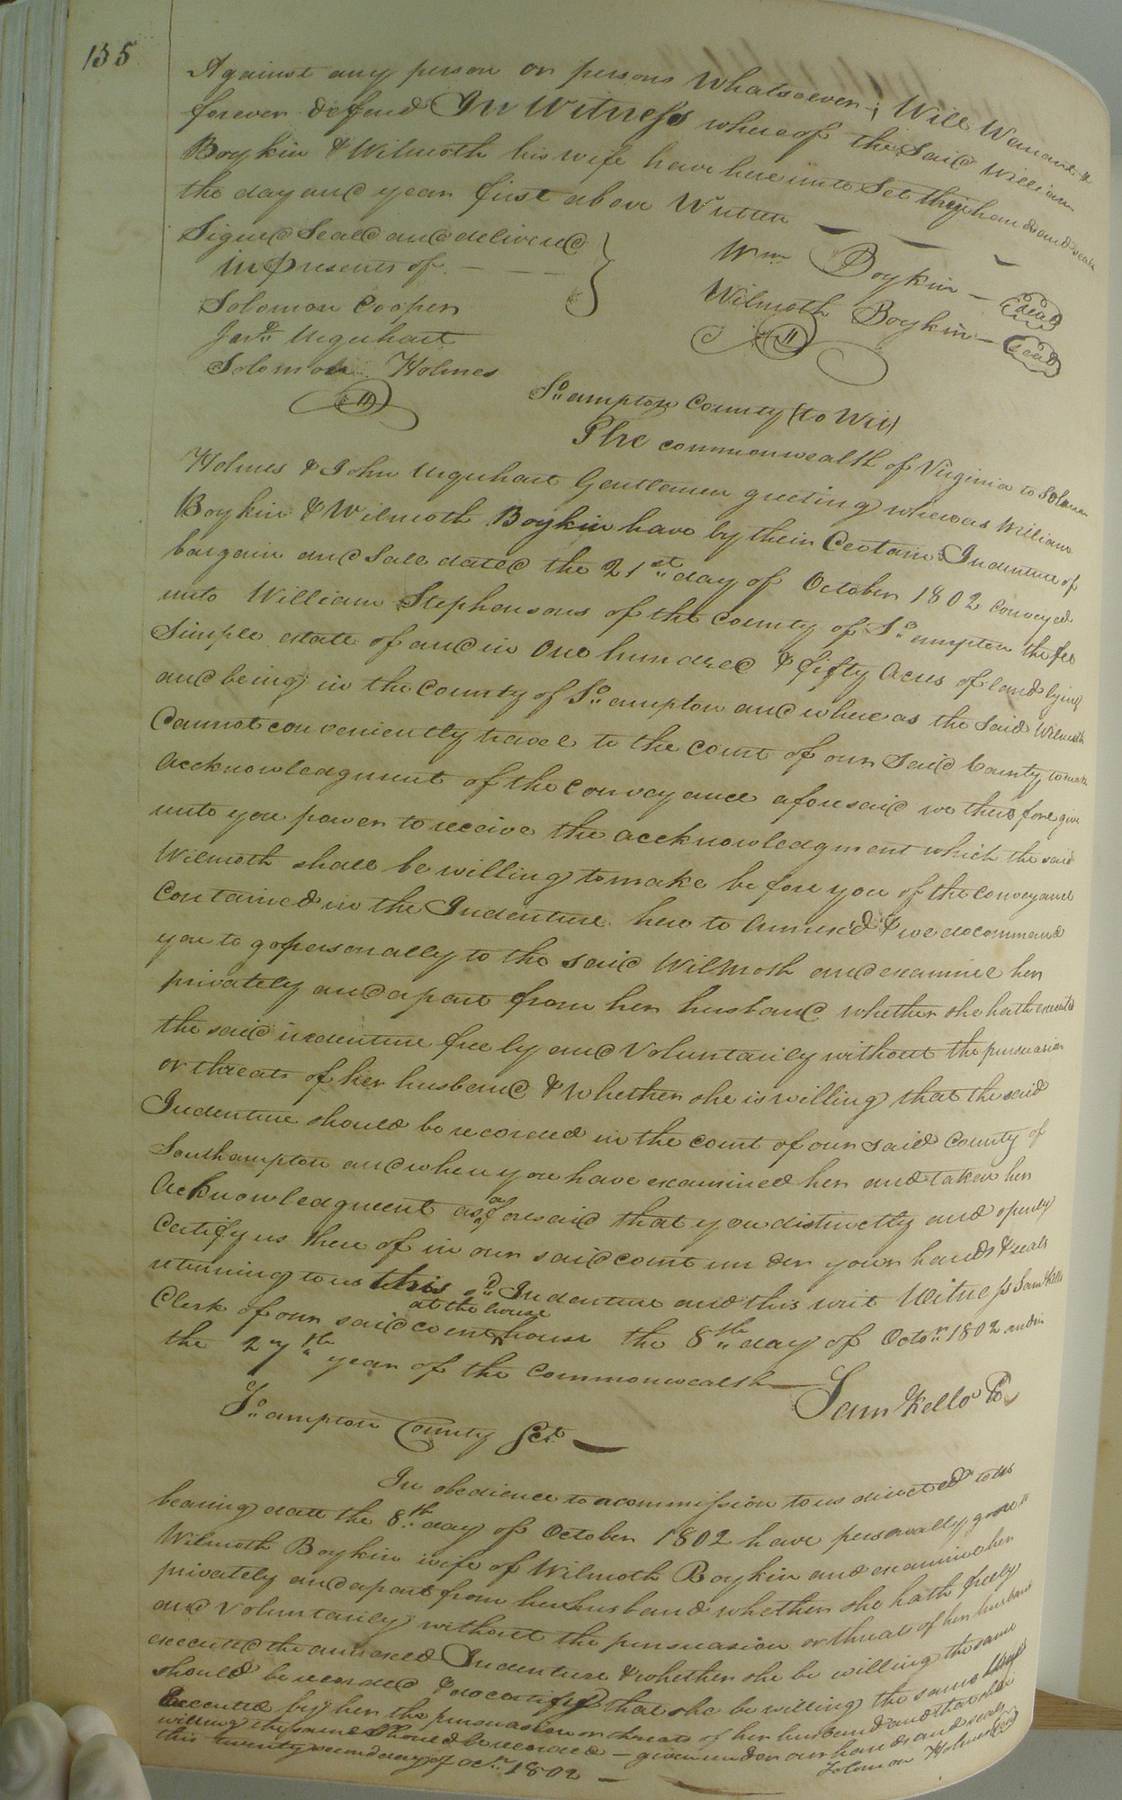 135
Against any person or persons Whatsoever; Will Warrant &
forever defend In Witness whereof the Said William
Boykin & Wilmoth his wife have here unto Set their hands and seals
the day and year first above Written
Signed Sealed and delivered
in Presents of
Wm Boykin Seal
Solomon Cooper
Wilmoth Boykin Seal
Jas. Urquhart
Solomon Holmes
So.ampton County (to Wit)
The commonwealth of Virginia to Solomon
Holmes & John Urquhart Gentlemen greeting whereas William
Boykin & Wilmoth Boykin have by their Certain Indenture of
bargain and Sale dated the 21st day of October 1802 Conveyed
unto William Stephensons of the County of So.ampton the fee
Simple estate of and in One hundred & fifty Acres of land lying
and being in the County of So.ampton and whereas the Said Wilmoth
Cannot conveniently travel to the Court of our Said County to make
Accknowledgment of the Conveyance aforesaid we therefore give
unto you power to receive the acckowledgment which the said
Wilmoth shall be willing to make before you of the Conveyance
Contained in the Indenture here to Annexed & we do command
you to go personally to the said Wilmoth and examine her
privately and apart from her husband whether she hath executed
the said indenture freely and Voluntarily without the persuasion
or threats of her husband & Whether she is willing that the said
Indenture should be recorded in the court of our said County of
Southampton and when you have examined her and taken her
Acknowledgment as aforesaid that you distinctly and openly
Certify us there of in our said court under your hands & seals
returning to us this sd. Indenture and this writ Witness Sam Kello
Clerk of our said court at the house house the 8th day of Octor. 1802 and in
the 27th year of the Commonwealth
Sam Kello
So.ampton County Sct.
In obedience to a commission to us directed to us
bearing date the 8th day of October 1802 have personally gone to
Wilmoth Boykin wife of Wilmoth Boykin and examine her
privately and apart from her husband whether she hath freely
and Voluntarily without the persuasion or threat of her husband
executed the annexed Indenture & whether she be willing the same
should be recorded & do certify that she be willing the same
Executed by her the persuasion or threats of her husband and that she is
willing the same Should be recorded - given under our hands and seals
this twenty second day of Octr. 1802
Solomon Holmes